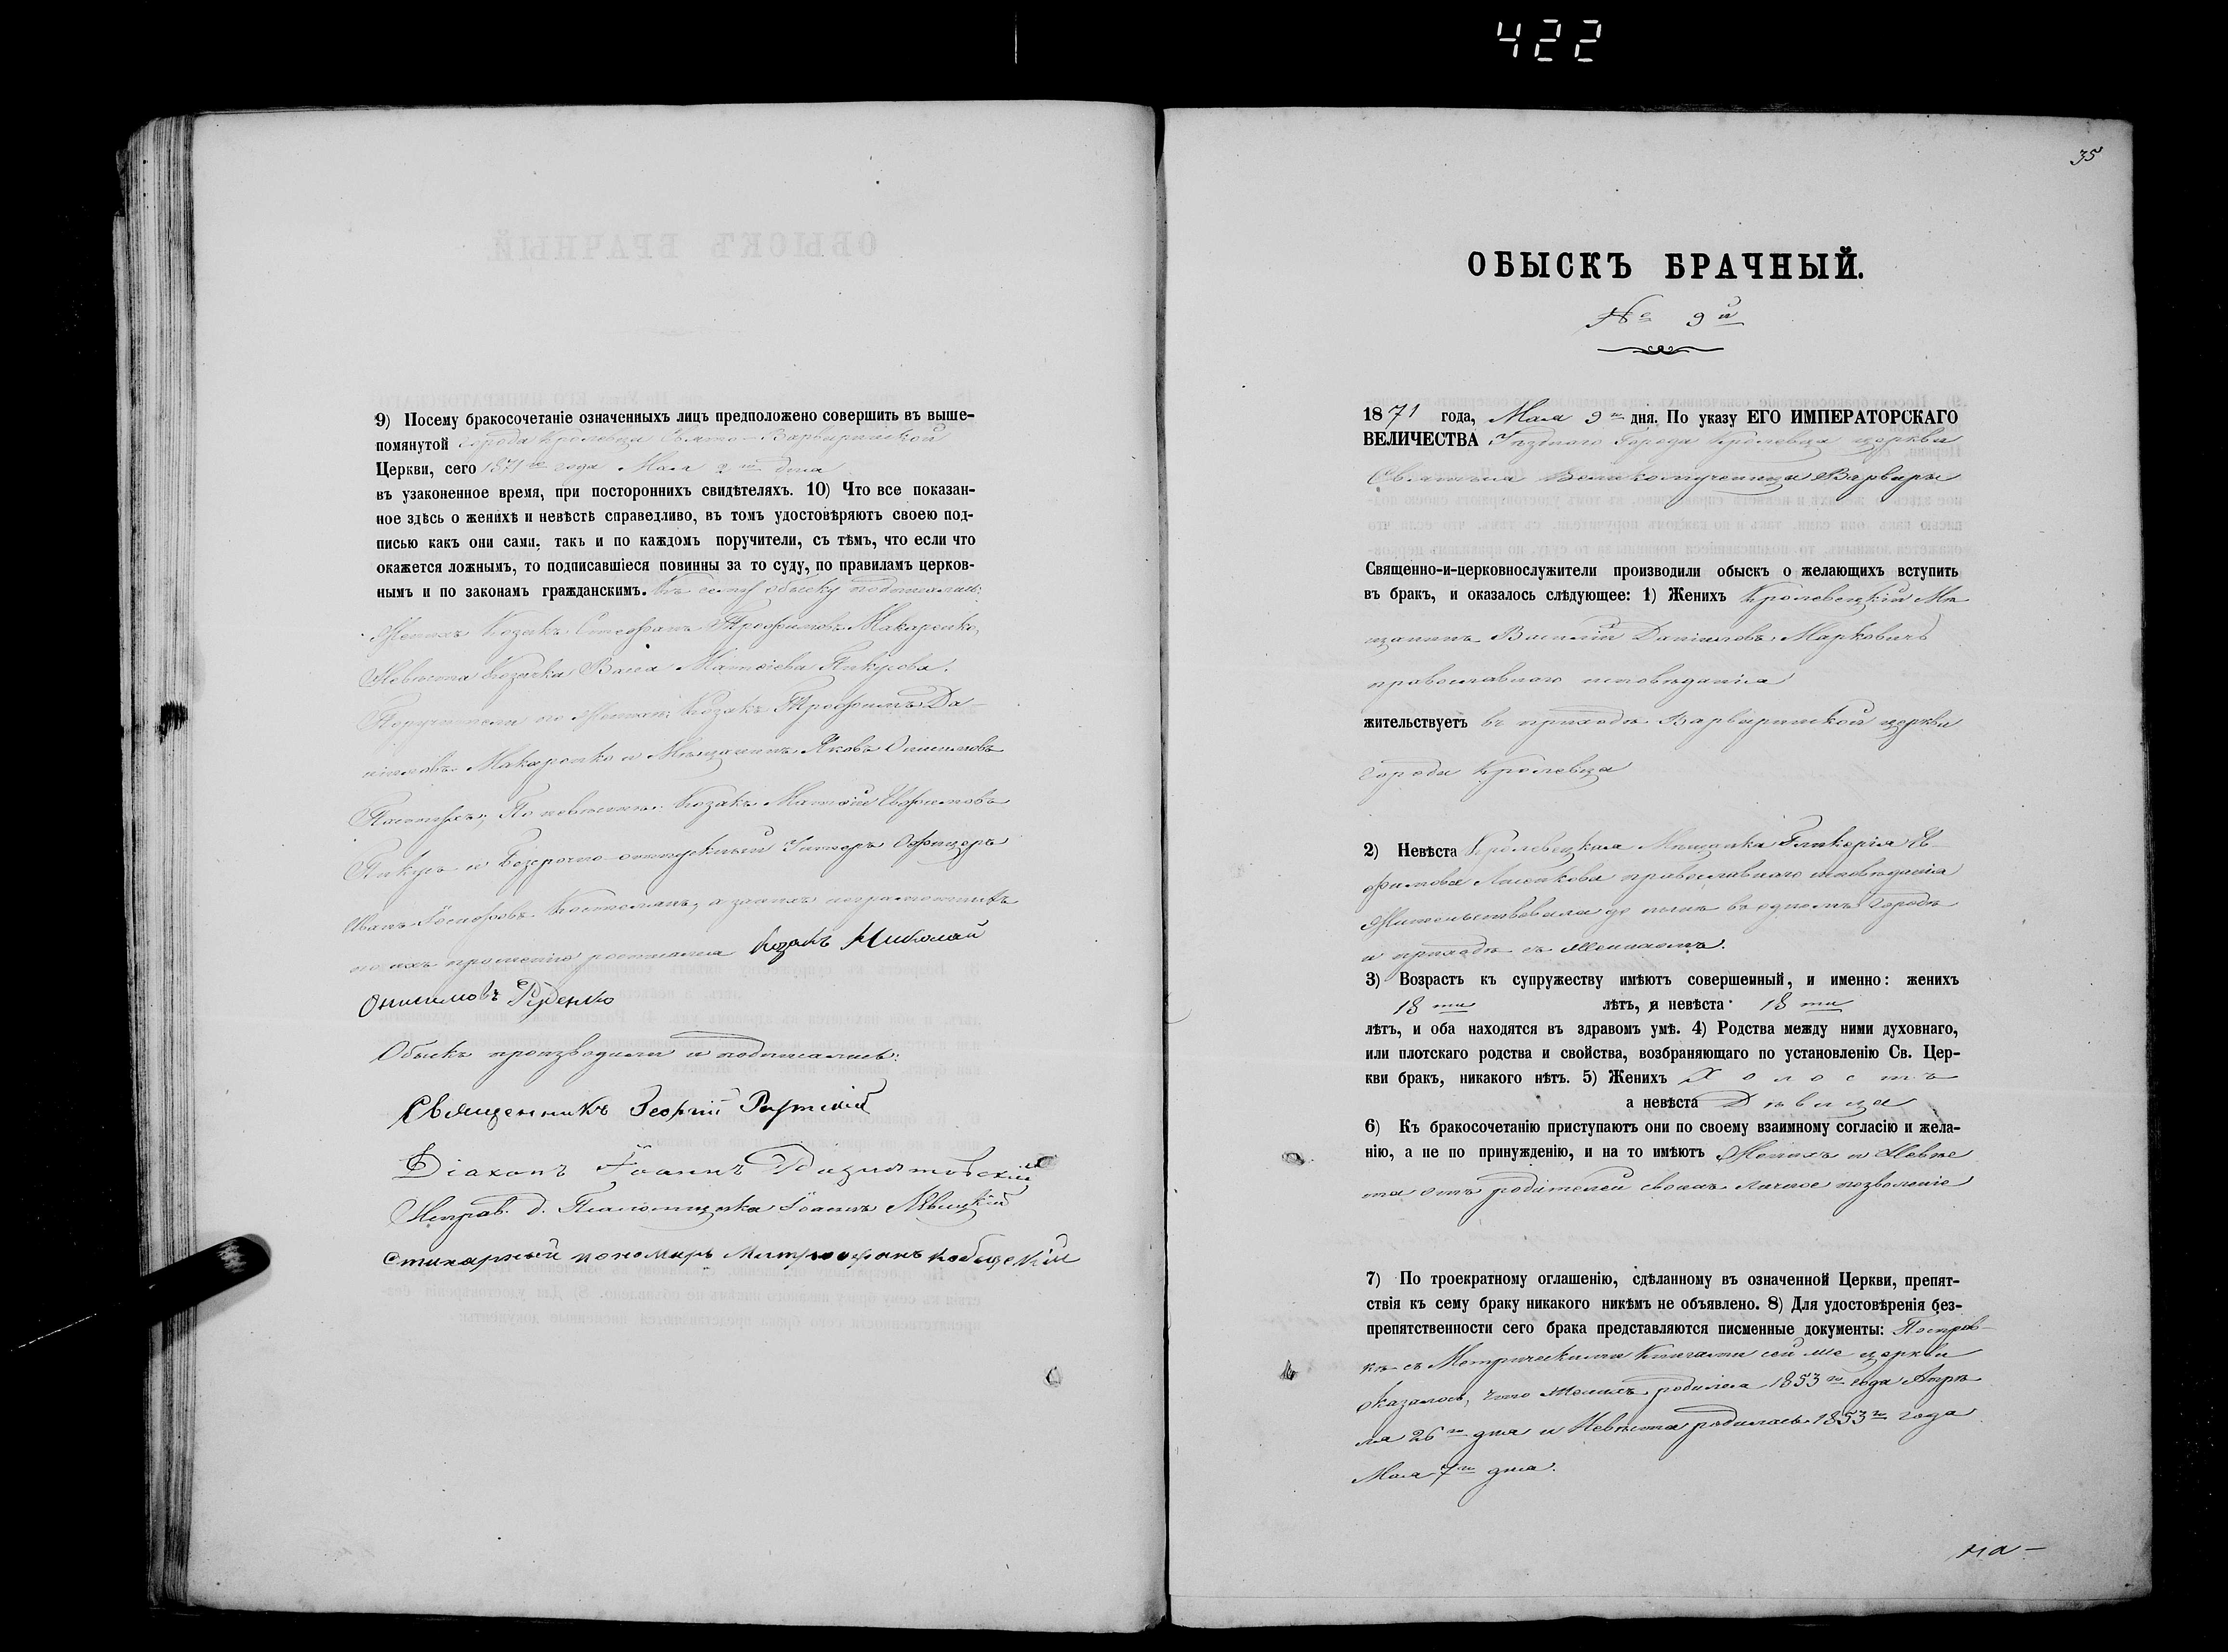 422
9) Посему бракосочетаніе означенныхъ лицъ предположено совершить въ выше-
помянутой города Кролевца Свято-Варваринской
Церкви, сего 1871го года Мая 2го дня
въ узаконенное время, при постороннихъ свидѣтеляхъ. 10) Что все показан-
ное здѣсь о женихѣ и невѣстѣ справедливо, въ томъ удостовѣряютъ своею под-
писью какъ они сами, такъ и по каждомъ поручители, съ тѣмъ, что если что
окажется ложнымъ, то подписавшіеся повинны за то суду, по правиламъ церков-
нымъ и по законамъ гражданскимъ. Къ сему обыску подписались:
Женихъ Козакъ Стефанъ Трофимовъ Макаренко,
Невѣста Козачка Васса Матѳіева Пикусова.
Поручители по Женихѣ: Козакъ Трофимъ Да-
ніиловъ Макаренко и Мѣщанинъ Яковъ Онисимовъ
По невѣстѣ: Козакъ Матѳій Евфимовъ
Пикусъ и Безсрочно-отпускный Унтеръ Офицеръ
Иванъ Іосифовъ а за нихъ неграмотныхъ
по ихъ прошенію росписался Козакъ Николай
Онисимовъ Руденко
Обыскъ производили и подписались:
Священникъ Георгій
Діаконъ Іоаннъ
Исправ. д. Псаломщика Іоаннъ Левицкій
Стихарный пономарь Митрофанъ
35
ОБЫСКЪ БРАЧНЫЙ.
№ 9й
1871 года, Мая 9го дня. По указу ЕГО ИМПЕРАТОРСКАГО
ВЕЛИЧЕСТВА Уѣзднаго Города Кролевца церкви
Святыя Великомученицы Варвары
Священно-и-церковнослужители производили обыскъ о желающихъ вступить
въ бракъ, и оказалось слѣдующее: 1) Женихъ Кролевецкій Мѣ
щанинъ Василій Даніиловъ Марковичъ
православнаго исповѣданія
жительствуетъ въ приходѣ Варваринской церкви
города Кролевца
2) Невѣста Кролевецкая Мѣщанка Гликерія Ев-
фимова православнаго исповѣданія
Жительствовала до нынѣ въ одномъ Городѣ
и приходѣ съ Женихомъ.
3) Возрастъ къ супружеству имѣютъ совершенный, и именно: женихъ
18 ти лѣтъ, а невѣста 18 ти
лѣтъ, и оба находятся въ здравомъ умѣ. 4) Родства между ними духовнаго,
или плотскаго родства и свойства, возбраняющаго по установленію Св. Цер-
кви бракъ, никакого нѣтъ. 5) Женихъ Холостъ
а невѣста Дѣвица
6) Къ бракосочетанію приступаютъ они по своему взаимному согласію и жела-
нію, а не по принужденію, и на то имѣютъ Женихъ и Невѣс
та отъ родителей своихъ личное позволеніе
7) По троекратному оглашенію, сдѣланному въ означенной Церкви, препят-
ствія къ сему браку никакого никѣмъ не объявлено. 8) Для удостовѣренія без-
препятственности сего брака представляются писменные документы: По справ-
кѣ съ Метрическими Книгами сей же церкви
оказалось, что Женихъ родился 1853го года Апрѣ
ля 26го дня и Невѣста родилась 1853го года
Мая 7го дня.
на-